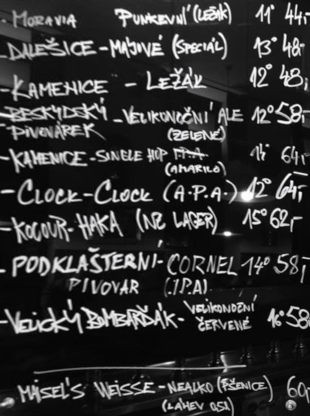 - MORAVIA PUNKEVNÍ (LEŽÁK) 11° 44,-
- DALEŠICE - MAJOVÉ (SPECIÁL) 13° 48,-
- KAMENICE - LEŽÁK 12° 48,-
- BESKYDSKÝ - VELIKONOČNÍ ALE 12° 58,-
PIVOVÁREK (ZELENÉ)
- KAMENICE - SINGLE HOP I.P.A. 14° 64,-
(AMARILO)
- CLOCK - CLOCK (A.P.A.) 12° 64,-
- KOCOUR - HAKA (NZ LAGER) 15° 62,-
- PODKLÁŠTERNÍ - CORNEL 14° 58,-
PIVOVAR (I.P.A)
- VELICKÝ BOMBARĎÁK - VELIKONOČNÍ
ČERVENÉ 58
- MAISEL'S WEISSE - NEALKO (PŠENICE) 60,-
(LAHEV 0,5l)